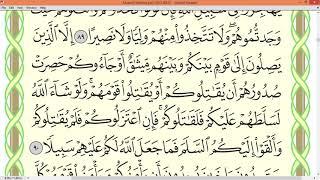 وَجَدتُّمُوهُمْ وَلَا تَتَّخِذُوا۟ مِنْهُمْ وَلِيًّا وَلَا نَصِيرًا ٨٩ إِلَّا ٱلَّذِينَ
يَصِلُونَ إِلَىٰ قَوْمٍۭ بَيْنَكُمْ وَبَيْنَهُم مِّيثَـٰقٌ أَوْ جَآءُوكُمْ حَصِرَتْ
صُدُورُهُمْ أَن يُقَـٰتِلُوكُمْ أَوْ يُقَـٰتِلُوا۟ قَوْمَهُمْ ۚ وَلَوْ شَآءَ ٱللَّهُ
لَسَلَّطَهُمْ عَلَيْكُمْ فَلَقَـٰتَلُوكُمْ ۚ فَإِنِ ٱعْتَزَلُوكُمْ فَلَمْ يُقَـٰتِلُوكُمْ
وَأَلْقَوْا۟ إِلَيْكُمُ ٱلسَّلَمَ فَمَا جَعَلَ ٱللَّهُ لَكُمْ عَلَيْهِمْ سَبِيلًا ٩٠